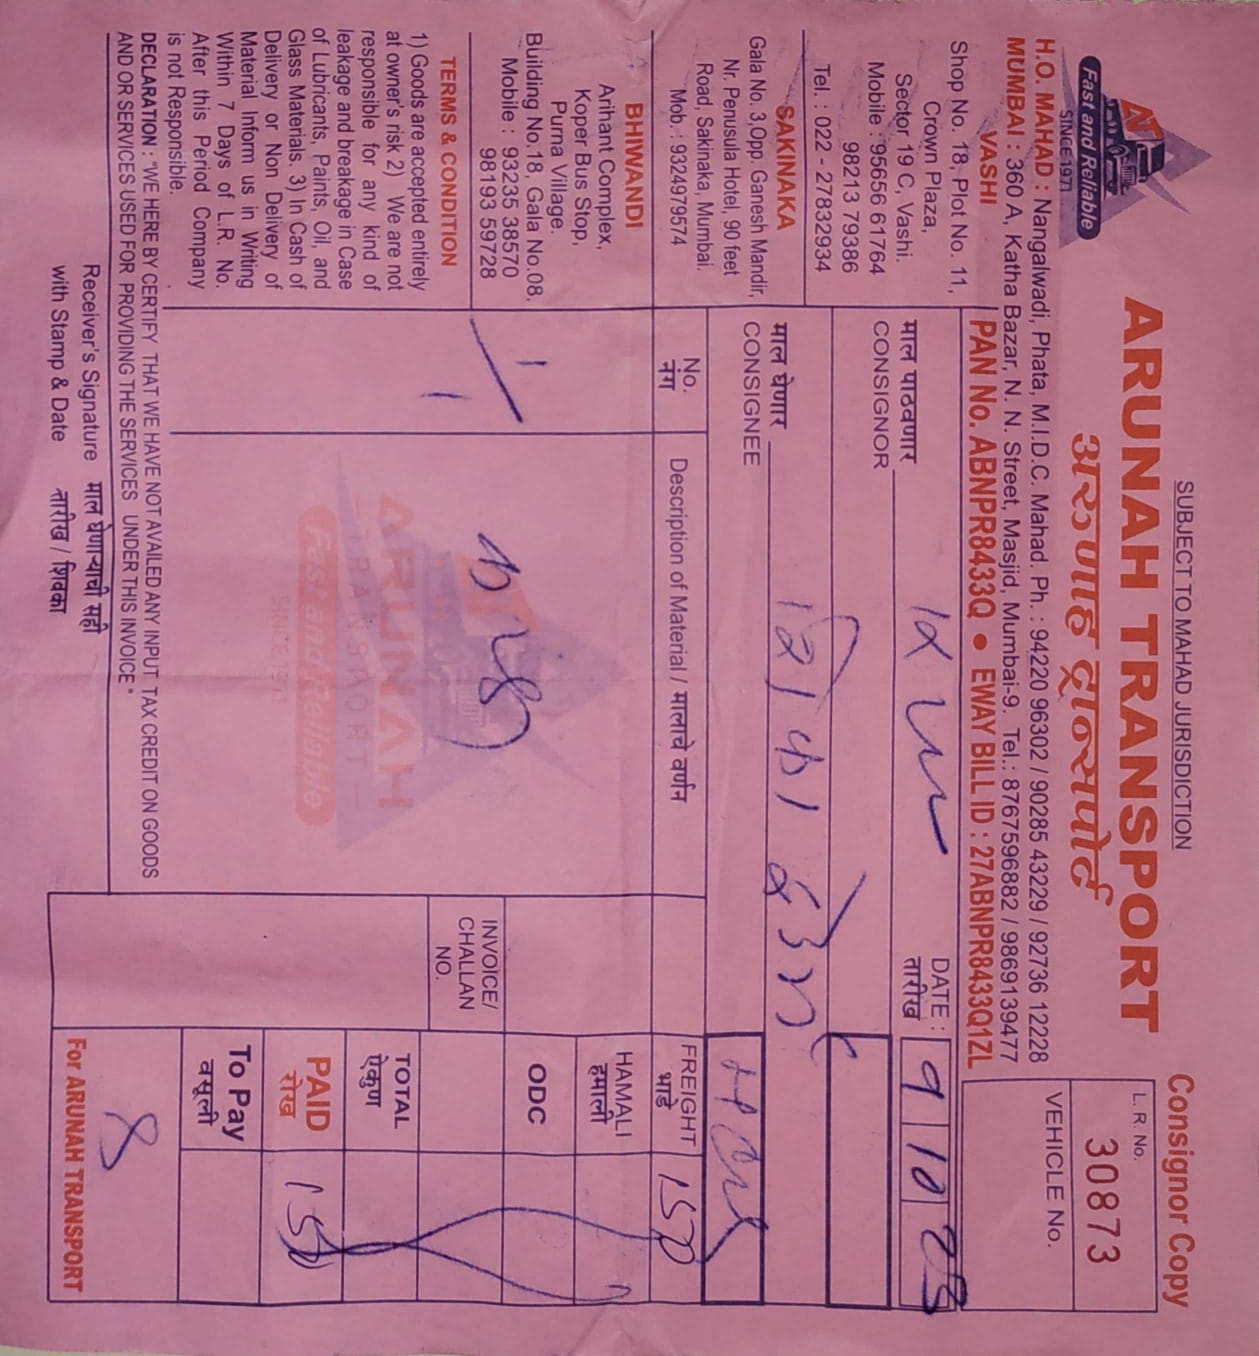 SUBJECT TO MAHAD JURISDICTION
Consignor Copy
ARUNAH TRANSPORT
अरुणाह ट्रान्सपोर्ट
AT
Fast and Reliable
SINCE 1971
L.R. No.
30873
H.O. MAHAD : Nangalwadi, Phata, M.I.D.C. Mahad. Ph. : 94220 96302 / 90285 43229 / 92736 12228
MUMBAI : 360 A, Katha Bazar, N. N. Street, Masjid, Mumbai-9. Tel.: 8767596882 / 9869139477
VEHICLE No.
PAN No. ABNPR8433Q • EWAY BILL ID : 27ABNPR8433Q1ZL
VASHI
Shop No. 18, Plot No. 11,
Crown Plaza,
Sector 19 C, Vashi.
Mobile : 95656 61764
98213 79386
Tel. : 022 - 27832934
SAKINAKA
Gala No. 3,Opp. Ganesh Mandir,
Nr. Penusula Hotel, 90 feet
Road, Sakinaka, Mumbai.
Mob. : 9324979574
BHIWANDI
Arihant Complex,
Koper Bus Stop,
Purna Village.
Building No.18, Gala No.08.
Mobile : 93235 38570
98193 59728
TERMS & CONDITION
1) Goods are accepted entirely
at owner's risk 2) We are not
responsible for any kind of
leakage and breakage in Case
of Lubricants, Paints, Oil, and
Glass Materials. 3) In Cash of
Delivery or Non Delivery of
Material Inform us in Writing
Within 7 Days of L.R. No.
After this Period Company
is not Responsible.
माल पाठवणार
CONSIGNOR
DATE :
तारीख
9 10 25
माल घेणार
CONSIGNEE
No.
नंग
Description of Material / मालाचे वर्णन
1
1
ARUNAH
TRANSPORT
Fast and Reliable
SINCE 1971
FREIGHT
भाडे
150
HAMALI
हमाली
ODC
INVOICE/
CHALLAN
NO.
TOTAL
ऐकुण
PAID
रोख
150
To Pay
वसूली
DECLARATION : "WE HERE BY CERTIFY THAT WE HAVE NOT AVAILED ANY INPUT TAX CREDIT ON GOODS
AND OR SERVICES USED FOR PROVIDING THE SERVICES UNDER THIS INVOICE"
Receiver's Signature माल घेणाऱ्याची सही
with Stamp & Date तारीख / शिक्का
For ARUNAH TRANSPORT